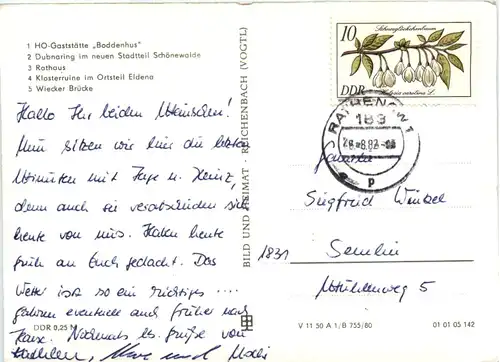 1 HO-Gaststätte „Boddenhus"
2 Dubnaring im neuen Stadtteil Schönewalde
3 Rathaus
4 Klosterruine im Ortsteil Eldena
5 Wiecker Brücke
Hallo Ihr beiden
Nun sitzen wir hier die letzten
Minuten mit Inge u. Heinz,
denn auch sie verabschieden sich
heute von uns. Haben heute
früh an Euch gedacht. Das
Wetter ist so ein richtiges
fahren eventuell auch früher nach
Hause. Nochmals lb. Grüße von
Uwe und
DDR 0,25 M
BILD UND HEIMAT · REICHENBACH (VOGTL)
10
Schneeglöckchenbaum
DDR
Halesia carolina L.
RATHENOW 1
183
p
Familie
Siegfried Winkel
1831 Semlin
Mühlenweg 5
V 11 50 A 1/B 755/80
01 01 05 142